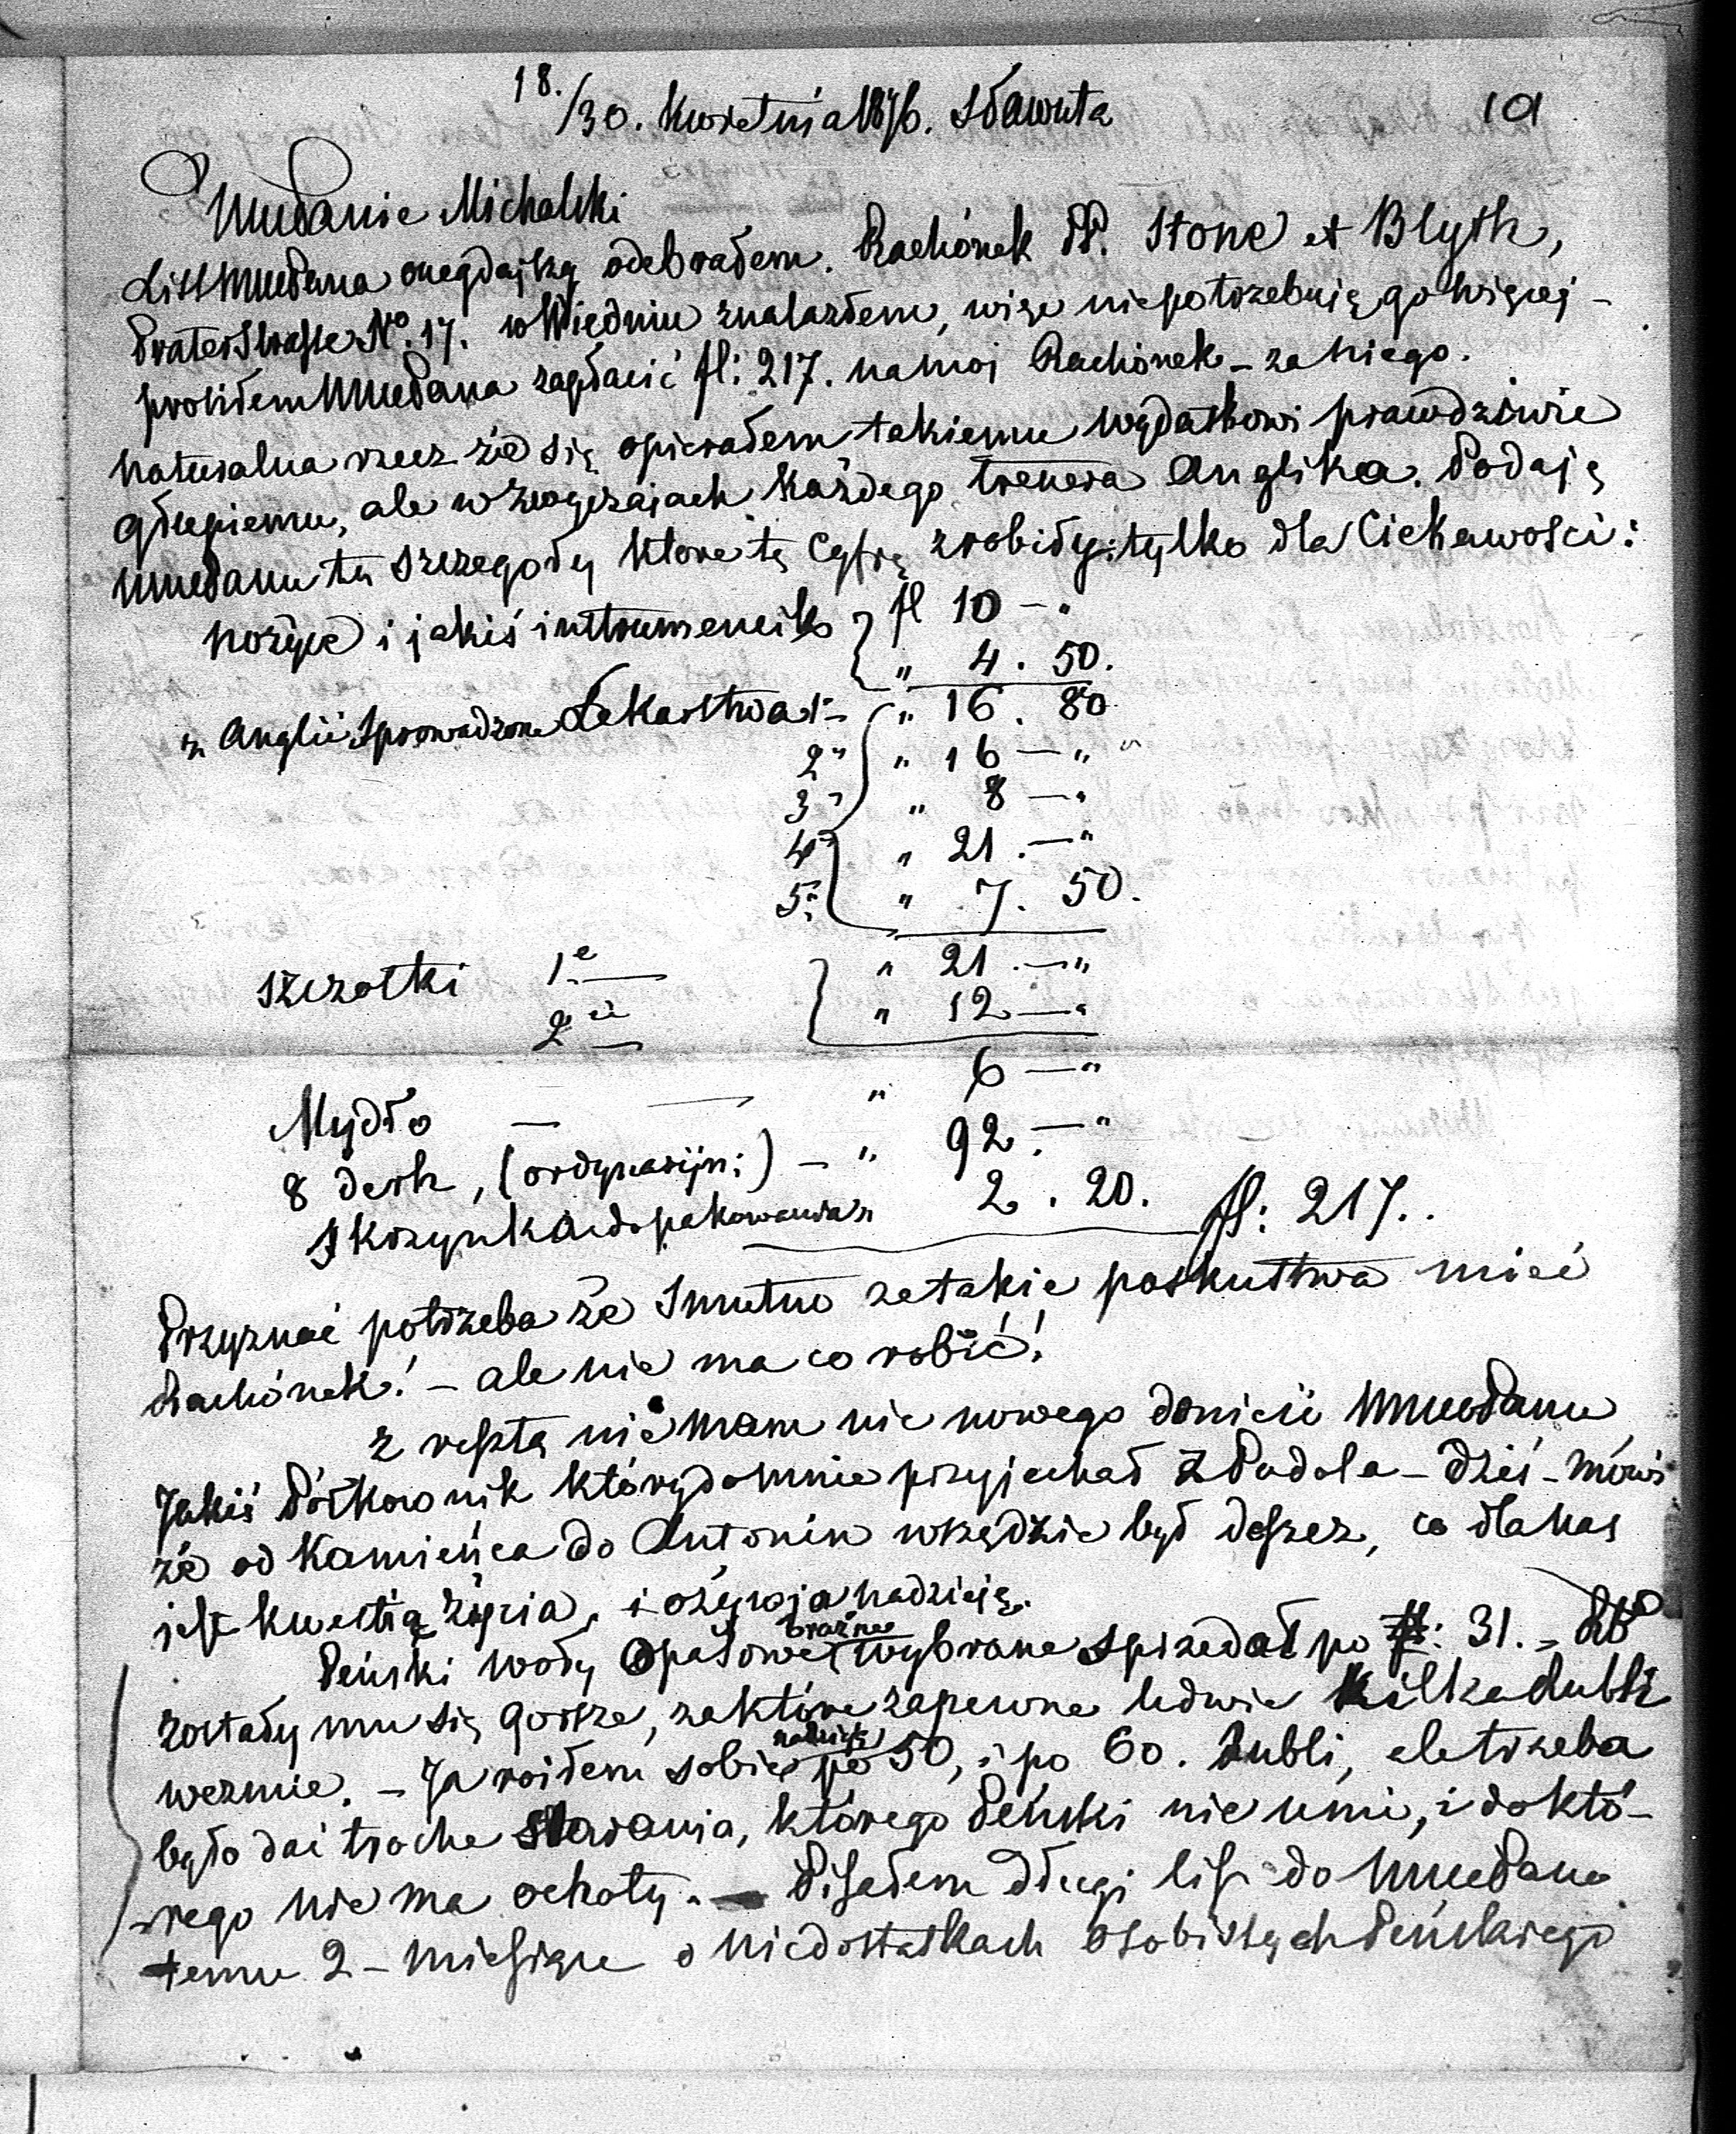 18./30. Kwietnia 1876. Sławuta
19
Mue Panie Michalski
List Mue Pana onegdajszą odebrałem. Rachónek PP. Stone et Blyth,
Praterstrasse No. 17. w Wiedniu znalazłem, więc niepotrzebuję go więcej -
prosiłem Mue Pana zapłacić fl: 217. na moj Rachónek - za niego.
naturalna rzecz że się opierałem takiemu wydatkowi prawdziwie
głupiemu, ale w zwyczajach każdego trenera Anglika. Podaję
Mue Panu tu szczegoły które tę cyfrę zrobiły: tylko dla Ciekawości:
nożyce i jakiś instrumencik fl 10 — "
" 4. 50.
z Anglii sprowadzone Lekarstwa 1- " 16. 80
2" " 16 — "
3" " 8 — "
4" " 21. — "
5" " 7. 50.
szczotki 1e " 21. — "
2ie " 12 — "
Mydło — " 6 — "
8 derk, (ordynaryjn:) - " 92. — "
1 koszyk do pakowania " 2. 20. fl: 217..
Przyznać potrzeba że smutno za takie paskustwa mieć
Rachónek! - ale nie ma co robić!
z resztą nie mam nic nowego donieść Mue Panu
Jakiś Półkownik który do mnie przyjechał z Podola - dziś - mówi
że od Kamieńca do Antonin wszędzie był deszcz, co dla nas
jest kwestią życia, i ożywia nadzieję.
Peński woły opasowe braźne wybrane sprzedał po 31. -
zostały mu się gorsze, za które zapewne ledwie kilka Rubli
wezmie. - Ja roiłem sobie nadzieję po 50, i po 60. Rubli, ale trzeba
było dać troche starania, którego Peński nie umi, i do któ-
-rego nie ma ochoty. - Pisałem długi list do Mue Pana
temu 2 - miesiące o niedostatkach osobistych Peńskiego